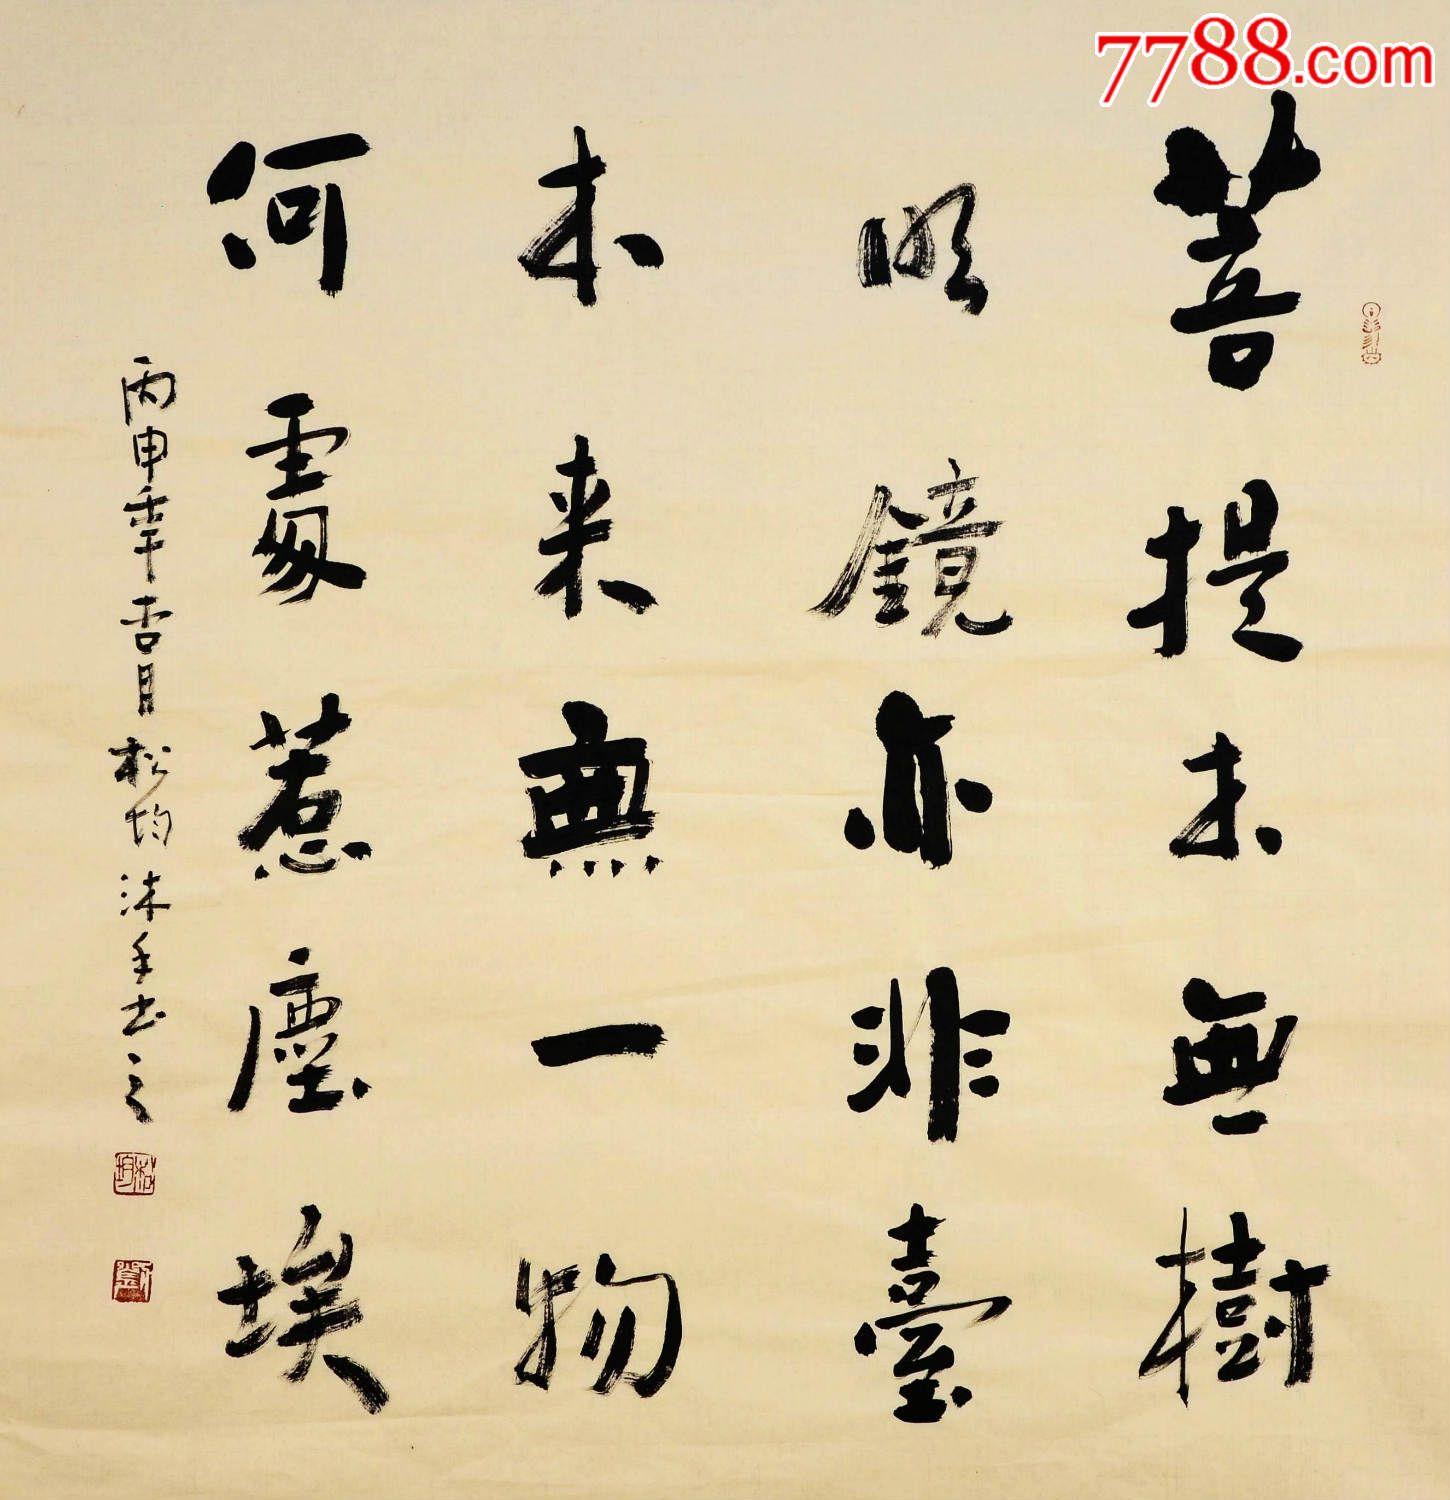 7788.com
菩提本無樹
明鏡亦非臺
本来無一物
何處惹塵埃
丙申年吉月松均沐手书之